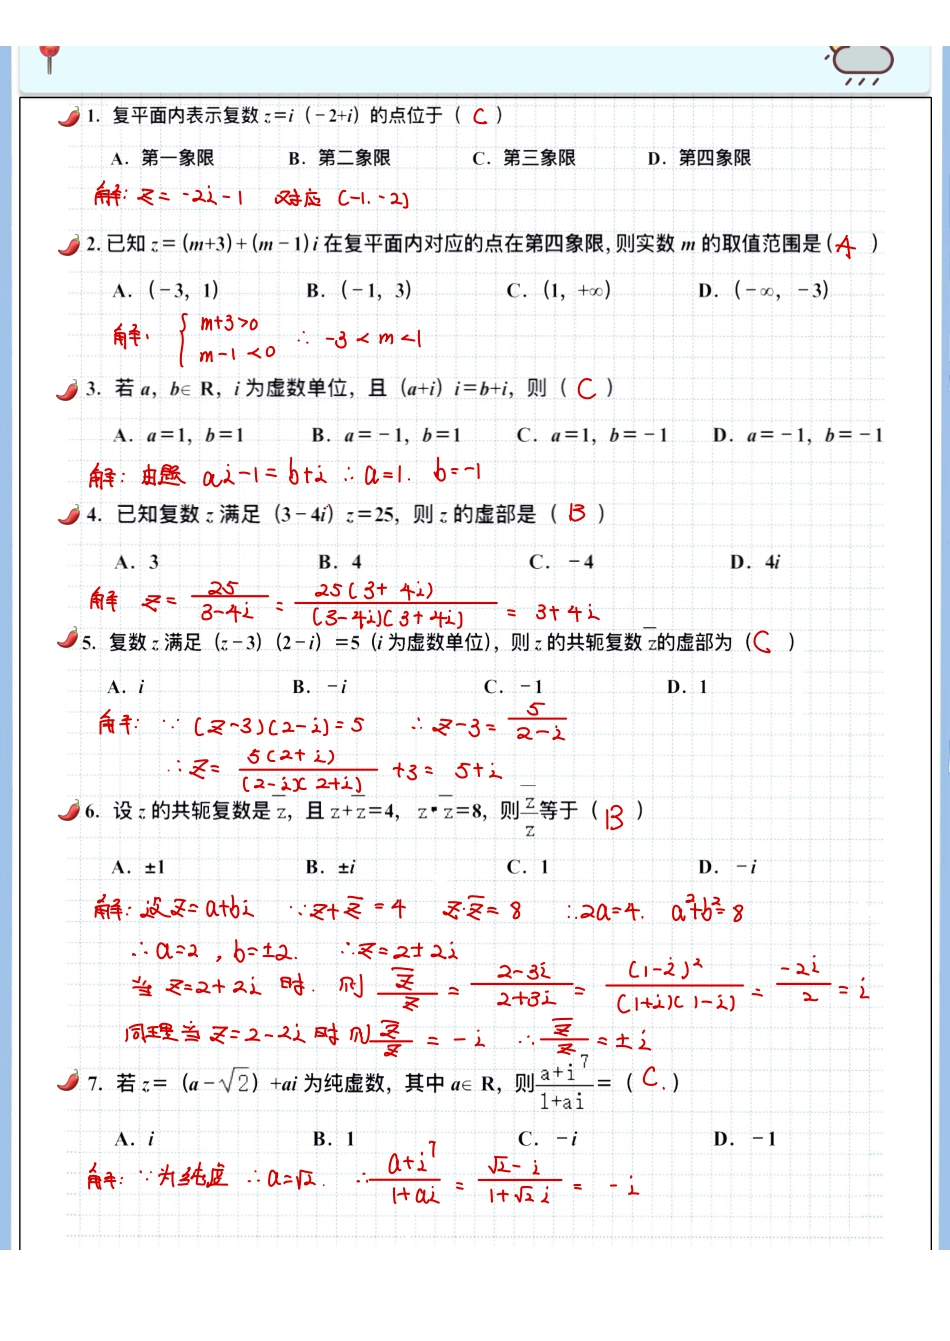 1. 复平面内表示复数 z=i(-2+i)的点位于( C )
A. 第一象限 B. 第二象限 C. 第三象限 D. 第四象限
解: z= -2i-1 对应 (-1.-2)
2. 已知 z=(m+3)+(m-1)i 在复平面内对应的点在第四象限,则实数 m 的取值范围是( A )
A. (-3, 1) B. (-1, 3) C. (1, +∞) D. (-∞, -3)
解: { m+3>0
m-1<0 ∴ -3<m<1
3. 若 a, b∈ R, i 为虚数单位, 且 (a+i) i=b+i, 则( C )
A. a=1, b=1 B. a=-1, b=1 C. a=1, b=-1 D. a=-1, b=-1
解: 由题 ai-1=b+i ∴a=1. b=-1
4. 已知复数 z 满足 (3-4i) z=25, 则 z 的虚部是( B )
A. 3 B. 4 C. -4 D. 4i
解 z= 25/(3-4i) = 25(3+4i)/((3-4i)(3+4i)) = 3+4i
5. 复数 z 满足 (z-3) (2-i) =5 (i 为虚数单位), 则 z 的共轭复数 z̅的虚部为( C )
A. i B. -i C. -1 D. 1
解: ∵ (z-3)(2-i)=5 ∴ z-3= 5/(2-i)
∴z= 5(2+i)/((2-i)(2+i)) +3= 5+i
6. 设 z 的共轭复数是 z̅, 且 z+z̅=4, z•z̅=8, 则 z̅/z 等于( B )
A. ±1 B. ±i C. 1 D. -i
解: 设z=a+bi ∵z+z̅=4 z·z̅=8 ∴2a=4. a²+b²=8
∴a=2, b=±2. ∴z=2±2i
当 z=2+2i 时. 则 z̅/z = (2-3i)/(2+3i) = (1-i)²/((1+i)(1-i)) = -2i/2 = i
同理当 z=2-2i 时 则 z̅/z = -i ∴ z̅/z = ±i
7. 若 z= (a-√2) +ai 为纯虚数, 其中 a∈ R, 则 (a+i⁷)/(1+ai) = ( C. )
A. i B. 1 C. -i D. -1
解: ∵为纯虚 ∴a=√2. ∴ (a+i⁷)/(1+ai) = (√2-i)/(1+√2i) = -i